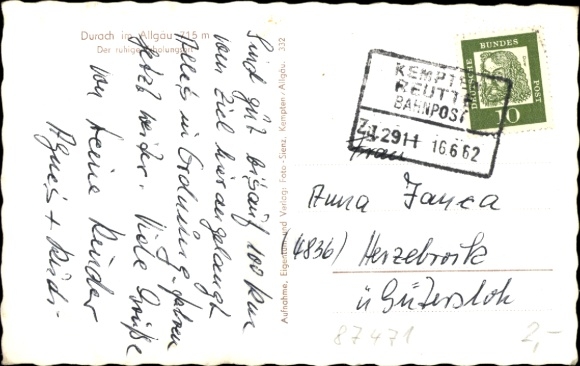 Durach im Allgäu 715 m
Der ruhige Erholungsort
Sind gut bis auf 100 km
vom Ziel hier angelangt
Alles in Ordnung, fahren
jetzt weiter. Viele Grüße
von Deine Kinder
Agnes + Rudi.
Aufnahme, Eigentum und Verlag: Foto-Sienz, Kempten/Allgäu. 332
KEMPTEN
REUTTE
BAHNPOST
Z.1.2911 16.6.62
DEUTSCHE BUNDES POST
10
Frau
Anna Janca
(4836) Herzebrock
ü Gütersloh
87471
2,-